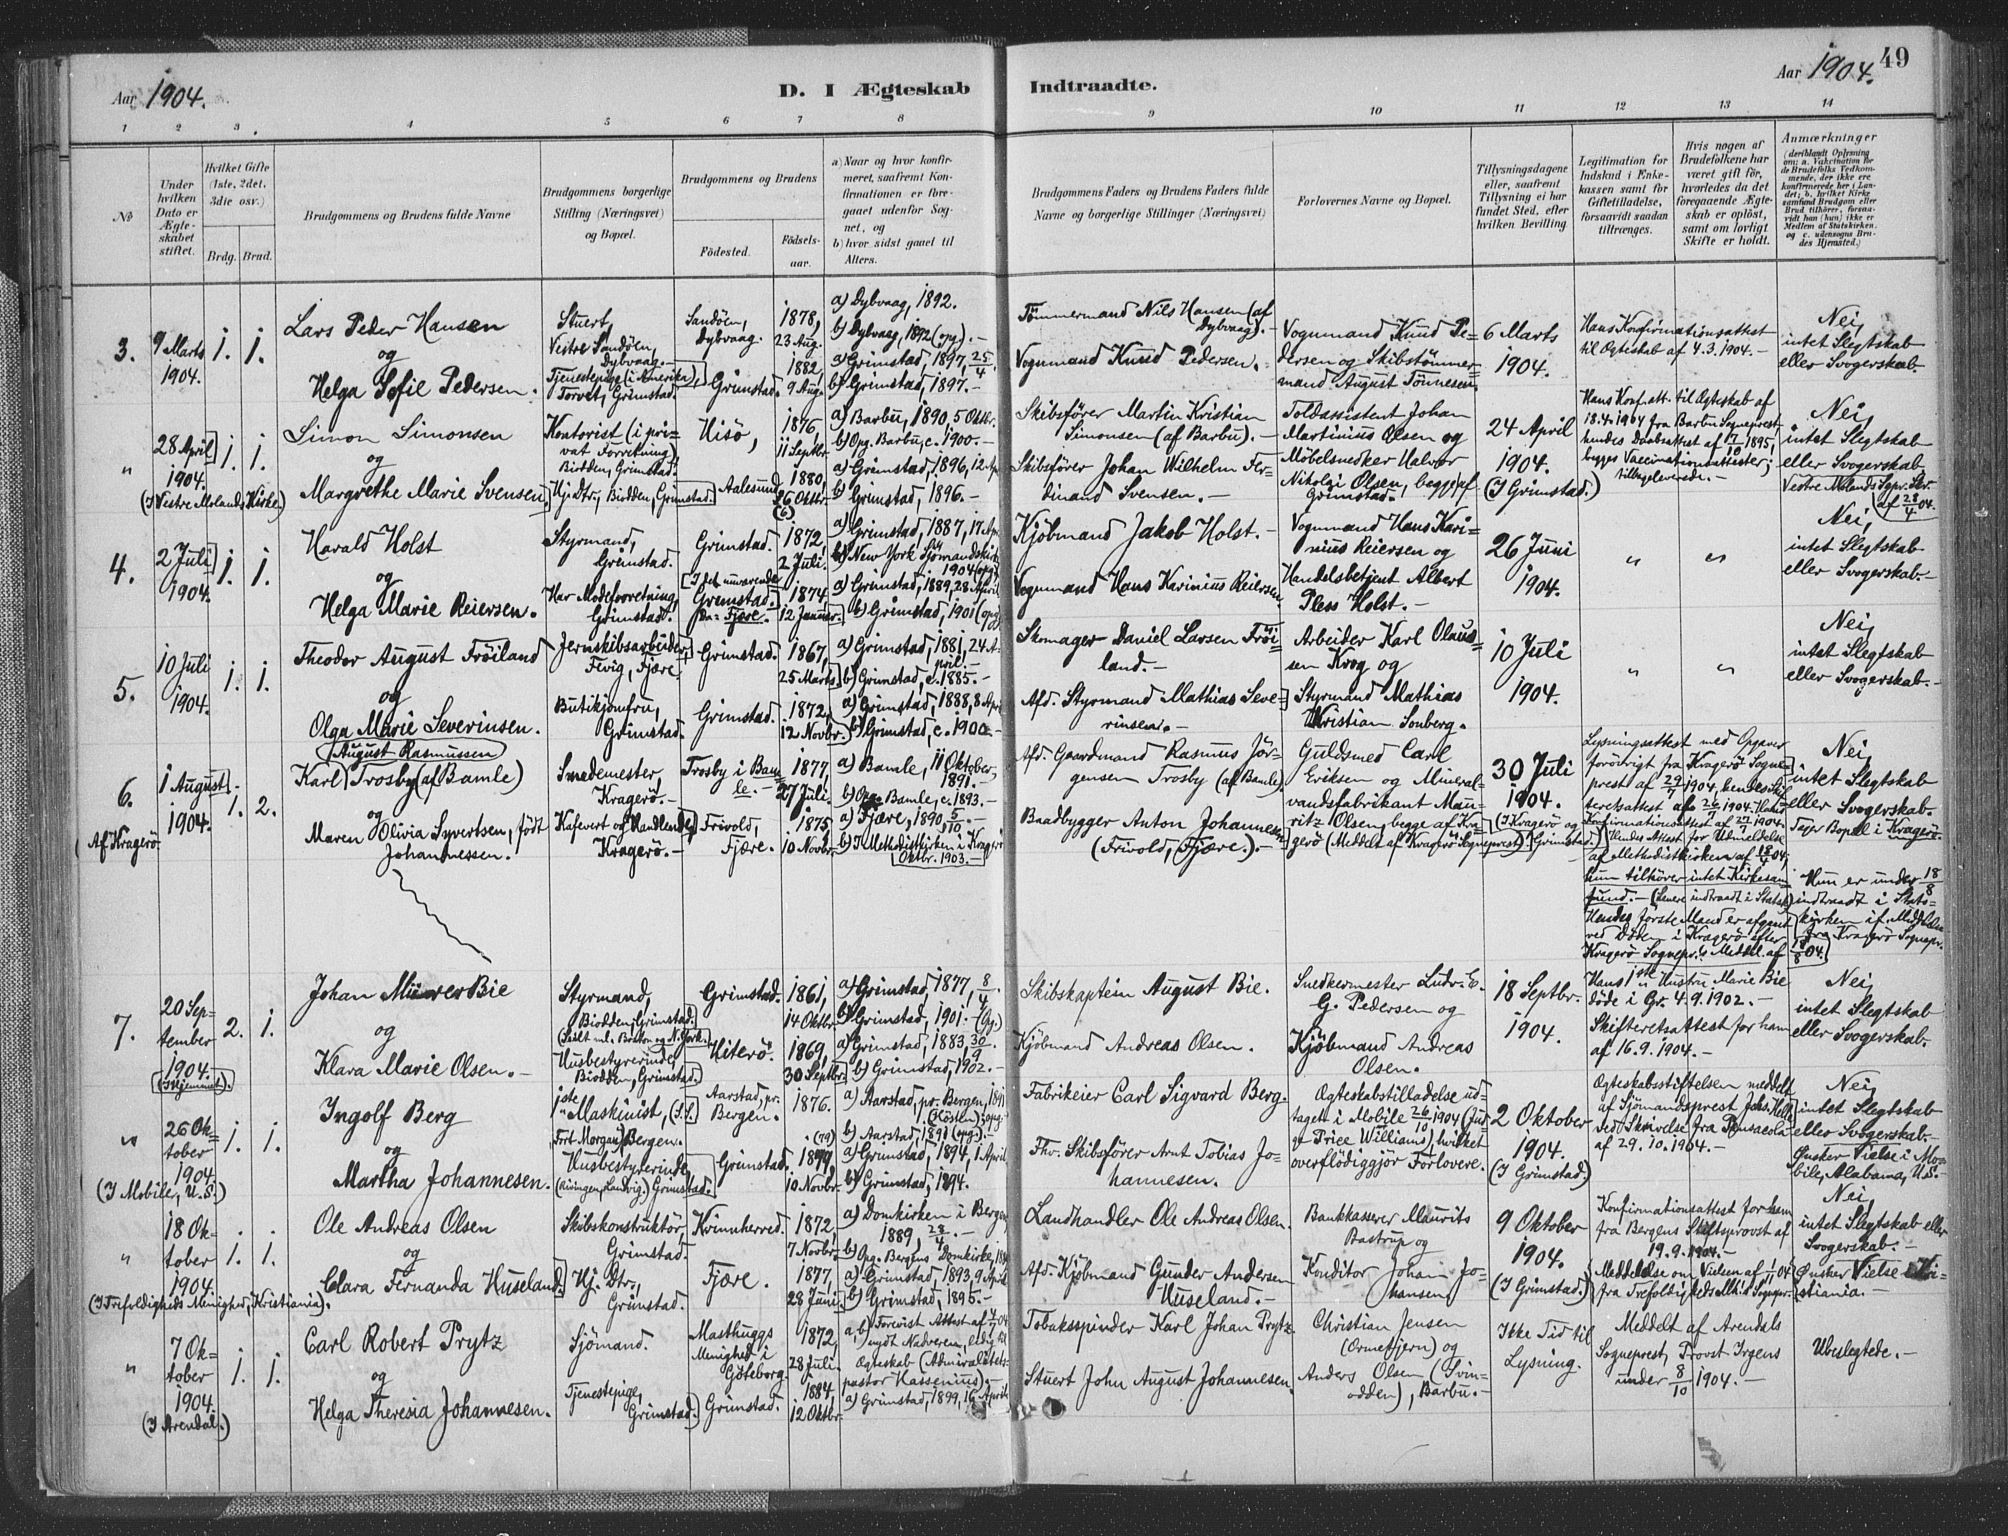 Aar 1904.
D. I Ægteskab
Indtraadte.
Aar 1904.
49
1 2 3. 4 5 6 7 8 9 10 11 12 13 14
No
Under hvilken Dato er Ægteskabet stiftet.
Hvilket Gifte (1ste, 2det, 3die osv.)
Brdg. Brud.
Brudgommens og Brudens fulde Navne
Brudgommens borgerlige Stilling (Næringsvei) og Bopæl.
Brudgommens og Brudens
Fødested.
Fødselsaar.
a) Naar og hvor konfirmeret, saafremt Konfirmationen er foregaaet udenfor Sognet, og
b) hvor sidst gaaet til Alters.
Brudgommens Faders og Brudens Faders fulde Navne og borgerlige Stillinger (Næringsvei)
Forlovernes Navne og Bopæl.
Tillysningsdagene eller, saafremt Tillysning ei har fundet Sted, efter hvilken Bevilling
Legitimation for Indskud i Enkekassen samt for Giftetilladelse, forsaavidt saadan tiltrænges.
Hvis nogen af Brudefolkene har været gift før, hvorledes da det foregaaende Ægteskab er opløst, samt om lovligt Skifte er holdt.
Anmærkninger
(deriblandt Oplysning om: a. Vaksination for de Brudefolks Vedkommende, der ikke ere konfirmerede her i Landet; b. hvilket Kirkesamfund Brudgom eller Brud tilhører, forsaavidt han (hun) ikke er Medlem af Statskirken, og c. udensogns Brudes Hjemsted.)
3.
9 Marts
1904.
1. 1.
Lars Peder Hansen
og
Helga Sofie Pedersen.
Stuert,
Vestre Sandöen,
Dybvaag.
Tjenestepige (i Amerika),
Torvet, Grimstad.
Sandöen,
Dybvaag.
Grimstad.
1878,
23 Aug.
1882,
9 Aug.
a) Dybvaag, 1892.
b) Dybvaag, 1892 (opg).
a) Grimstad, 1897, 25/4
b) Grimstad, 1897.
Tömmermand Nils Hansen (af
Dybvaag).
Vognmand Knud Pedersen.
Vognmand Knud Pe-
dersen og Skibstömmer-
mand August Tönnesen.
6 Marts
1904.
Hans Konfirmationsattest
til Ægteskab af 4.3.1904.
Nei,
intet Slegtskab
eller Svogerskab
"
28 April
1904.
(I Vestre Molands Kirke.)
1. 1.
Simon Simonsen
og
Margrethe Marie Svensen.
Kontorist (i pri-
vat Forretning),
Biodden, Grimstad.
Hj. Dtr., Biodden, Grimstad.
Hisö,
Aalesund.
1876,
11 Septbr.
1880,
26 Oktbr.
(6)
a) Barbu, 1890, 5 Oktbr.
b) Opg. Barbu, c. 1900.
a) Grimstad, 1896, 12 Apr.
b) Grimstad, 1896.
Skibsförer Martin Kristian
Simonsen (af Barbu).
Skibsförer Johan Wilhelm Fer-
dinand Svensen.
Toldassistent Johan
Martinius Olsen og
Möbelsnedker Halvor
Nikolai Olsen, begge af
Grimstad.
24 April
1904.
(I Grimstad.)
Hans Konf. att. til Ægteskab af
18.4.1904 fra Barbu Sogneprest,
hendes Daabsattest af 17/10 1895,
begges Vaccinationsattester;
tilbageleverede.
Nei,
intet Slegtskab
eller Svogerskab
Vestre Molands Sgpr. Skr.
af 28/4 04.
4.
2 Juli
1904.
1. 1.
Harald Holst
og
Helga Marie Reiersen.
Styrmand,
Grimstad.
Har Modeforretning,
Grimstad.
Grimstad.
I det nuværende
Grimstad.
Fjære.
1872,
2 Juli.
1874,
12 Januar.
a) Grimstad, 1887, 17 April
b) New York Sjömandskirke
1904 (opg).
a) Grimstad, 1889, 28 April
b) Grimstad, 1901 (opg.)
Kjöbmand Jakob Holst.
Vognmand Hans Karinius Reiersen.
Vognmand Hans Kari-
nius Reiersen og
Handelsbetjent Albert
Pless Holst.
26 Juni
1904.
" "
Nei,
intet Slegtskab
eller Svogerskab.
5.
10 Juli
1904.
1. 1.
Theodor August Fröiland
og
Olga Marie Severinsen.
Jernskibsarbeider,
Fevig, Fjære.
Butikjomfru,
Grimstad.
Grimstad.
Grimstad.
1867,
25 Marts.
1872,
12 Novbr.
a) Grimstad, 1881, 24 A-
pril.
b) Grimstad, c. 1885.
a) Grimstad, 1888, 8 Apr.
b) Grimstad, c. 1900.
Skomager Daniel Larsen Fröi-
land.
Afd. Styrmand Mathias Seve-
rinsen.
Arbeider Karl Olaus-
sen Krog og
Styrmand Mathias
Kristian Sonberg.
10 Juli
1904.
" "
Nei,
intet Slegtskab
eller Svogerskab.
6.
Af Kragerö.
1 August
1904.
1. 2.
August Rasmussen
Karl Trosby (af Bamle)
og
Maren Olivia Syvertsen, födt
Johannessen.
Smedemester,
Kragerö.
Kafevert og Handlende,
Kragerö.
Trosby i Bam-
le.
Frivold,
Fjære.
1877,
27 Juli.
1875,
10 Novbr.
a) Bamle, 11 Oktober,
1891.
b) Opg. Bamle, c. 1893.
a) Fjære, 1890, 5/10
b) I Methodistkirken i Kragerö
Oktbr. 1903.
Afd. Gaardmand Rasmus Jör-
gensen Trosby (af Bamle).
Baadbygger Anton Johannesen
(Frivold, Fjære.).
Guldsmed Carl
Eriksen og Mineral-
vandsfabrikant Mau-
ritz Olsen, begge af Kra-
gerö (Meddelt af Kragerö Sogneprest)
30 Juli
1904.
(I Kragerö og
Grimstad.)
Lysningsattest med Opgaver
forövrigt fra Kragerö Sogne-
prest af 29/7 1904, hendes Skif-
teretsattest af 26/7 1904. Hans
Konfirmationsattest af 27/7 1904.
Hendes Attest for Udmeldelse
af Methodistkirken af 18/4 04,
hun tilhörer intet Kirkesam-
fund. (Senere indtraadt i Statsk.)
Hendes förste Mand er afgaaet
ved Döden i Kragerö efter
Kragerö Sognepr.s Meddel. af
Nei,
intet Slegtskab
eller Svogerskab.
Tager Bopæl i Kragerö.
Hun er under 18/8
indtraadt i Stats-
kirken if. Meddelelse
fra Kragerö Sognepr.
18/8 04.
7.
20 Sep-
tember
1904.
(I Hjemmet).
2. 1.
Johan Bie
og
Klara Marie Olsen.
Styrmand,
Biodden, Grimstad.
(Seilt ml. Boston og N. York.)
Husbestyrerinde,
Biodden, Grimstad.
Grimstad.
Hiterö.
1861,
14 Oktbr.
1869,
30 Septbr.
a) Grimstad, 1877, 8/4
b) Grimstad, 1901. (Opg.)
a) Grimstad, 1883, 30/9
b) Grimstad, 1902.
Skibskaptein August Bie.
Kjöbmand Andreas Olsen.
Snedkermester Ludv. E.
G. Pedersen og
Kjöbmand Andreas
Olsen.
18 Septbr.
1904.
Hans 1ste Hustru Marie Bie
döde i Gr. 4.9.1902.
Skifteretsattest for ham
af 16.9.1904.
Nei,
intet Slegtskab
eller Svogerskab.
"
26 Ok-
tober
1904.
(I Mobile, U.S.)
1. 1.
Ingolf Berg
og
Martha Johannesen.
1ste Maskinist, (S.S.
Fort Morgan) Bergen.
Husbestyrerinde,
Grimstad.
Aarstad, pr.
Bergen.
Grimstad.
1876.
(79)
10 Novbr.
a) Aarstad, pr. Bergen, 1891
(Hösten) opg.
b) Aarstad, 1891 (opg.).
a) Grimstad, 1894, 1 April
b) Grimstad, 1894.
Fabrikeier Carl Sigvard Berg.
Fhv. Skibsförer Arnt Tobias Jo-
hannesen.
Ægteskabstilladelse ud-
taget i Mobile 26/10 1904 (Jud-
ge Price Williams), hvilket
overflödiggjör Forlovere.
2 Oktober
1904.
(I Grimstad.)
Ægteskabsstiftelsen meddelt
af Sjömandsprest Johs.
ved Skrivelse fra Pensacola
af 29.10.1904.
Nei,
intet Slegtskab
eller Svogerskab.
Önsker Vielse i Mo-
bile, Alabama, U.S.
"
18 Ok-
tober
1904.
(I Trefoldigheds Menighed, Kristiania).
1. 1.
Ole Andreas Olsen
og
Clara Fernanda Huseland.
Skibskonstruktör,
Grimstad.
Hj. Dtr.,
Grimstad.
Kvinnherred.
Fjære.
1872,
7 Novbr.
1877,
28 Juni.
a) Domkirken i Bergen
1889, 28/4.
b) Opg. Bergens Domkirke,
a) Grimstad, 1893, 9 April
b) Grimstad, 1895.
Landhandler Ole Andreas Olsen.
Afd. Kjöbmand Gunder Andersen
Huseland.
Bankkasserer Maurits
Bastrup og
Konditor Johan Jo-
hansen.
9 Oktober
1904.
(I Grimstad.)
Konfirmationsattest for ham
fra Bergens Stiftsprovst af
19.9.1904.
Meddelelse om Vielsen af 1/11 04
fra Trefoldigheds Mhd. Sognepr.
Nei,
intet Slegtskab eller
Svogerskab.
Önsker Vielse i Kri-
stiania.
"
7 Ok-
tober
1904.
(I Arendal.)
1. 1.
Carl Robert Prytz
og
Helga Theresia Johannesen.
Sjömand.
Tjenestepige,
Grimstad.
Masthuggs
Menighed i
Göteborg.
Grimstad.
1872,
28 Juli.
1884,
12 Oktbr.
a, b) Forevist Attest af
nydt Nadveren, ledig til
Ægteskab (Admiralitets-
pastor Hassenius).
a) Grimstad, 1899, 16 April
Tobaksspinder Karl Johan Prytz
Stuert John August Johannesen.
Christian Jensen
(Ormetjern) og
Anders Olsen (Svin-
odden), Barbu.
Ikke Tid til
Lysning.
Meddelt af Arendals
Sogneprest, Provst Irgens
under 8/10 1904.
Ubeslegtede.